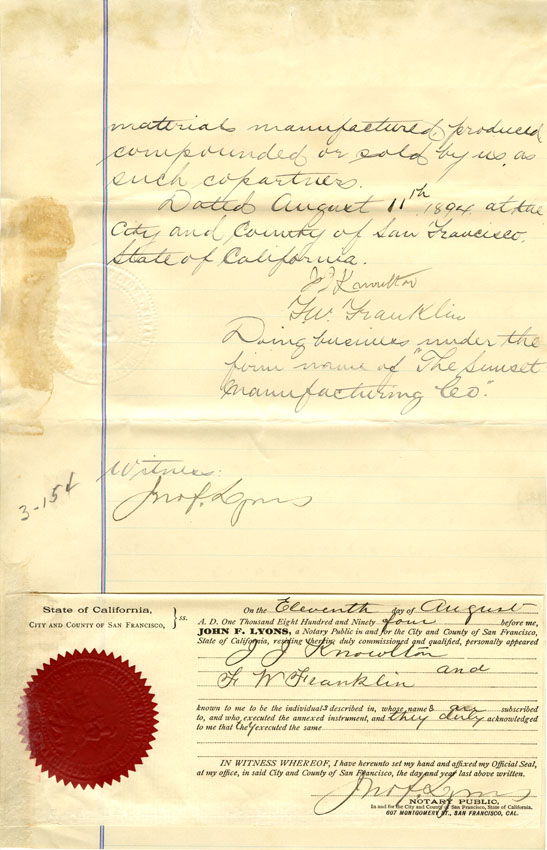 materials manufactured, produced
compounded or sold by us, as
such copartners.
Dated August 11th 1894, at the
City and County of San Francisco,
State of California.
J J Knowlton
F. W. Franklin
Doing business under the
firm name of "The Sunset
Manufacturing Co".
Witness:
Jno. F. Lyons
3-154
State of California,
CITY AND COUNTY OF SAN FRANCISCO, } ss.
On the Eleventh day of August
A. D. One Thousand Eight Hundred and Ninety four before me,
JOHN F. LYONS, a Notary Public in and for the City and County of San Francisco,
State of California, residing therein, duly commissioned and qualified, personally appeared
J J Knowlton
and
F W Franklin
known to me to be the individuals described in, whose names are subscribed
to, and who executed the annexed instrument, and they duly acknowledged
to me that they executed the same
IN WITNESS WHEREOF, I have hereunto set my hand and affixed my Official Seal,
at my office, in said City and County of San Francisco, the day and year last above written.
Jno. F. Lyons
NOTARY PUBLIC.
In and for the City and County of San Francisco, State of California.
607 MONTGOMERY ST., SAN FRANCISCO, CAL.